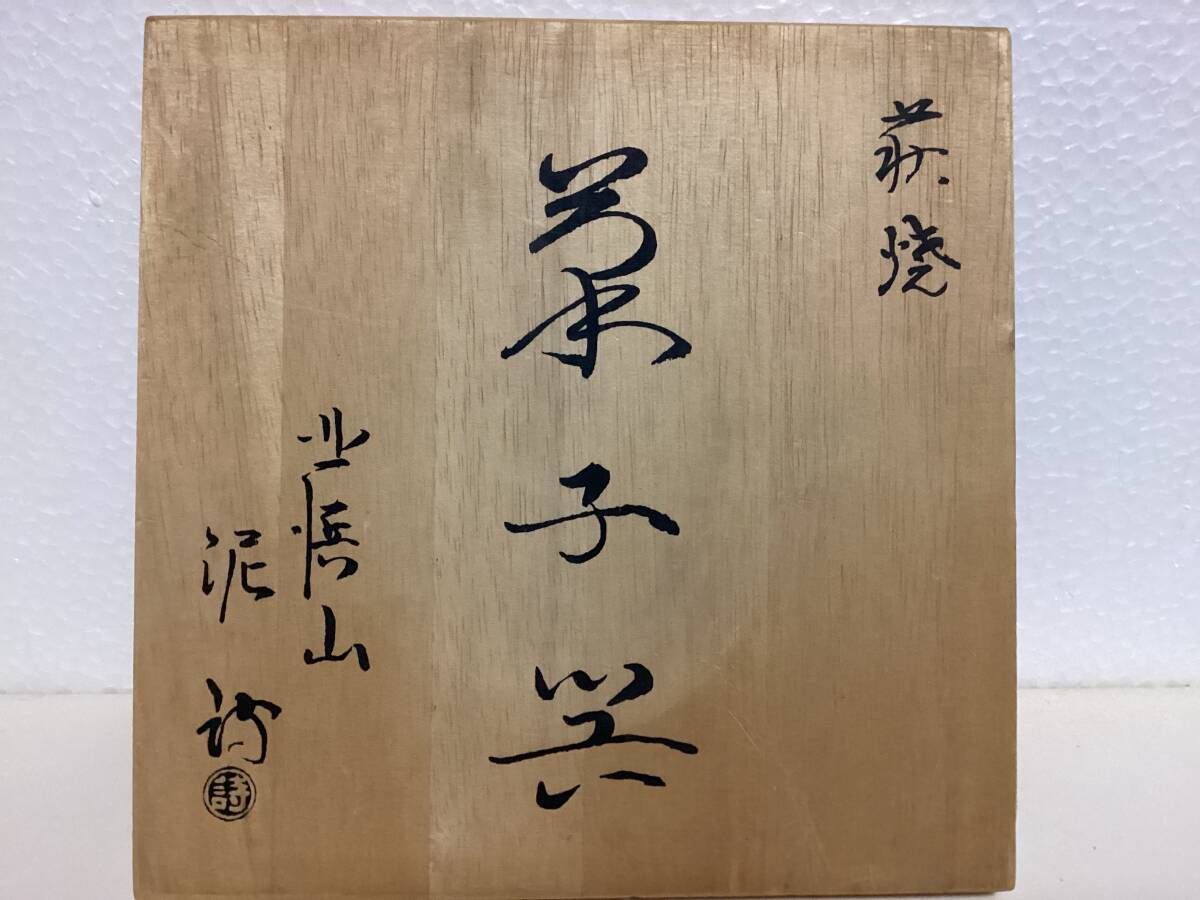 萩焼
菓子器
北浜山
泥詩
詩